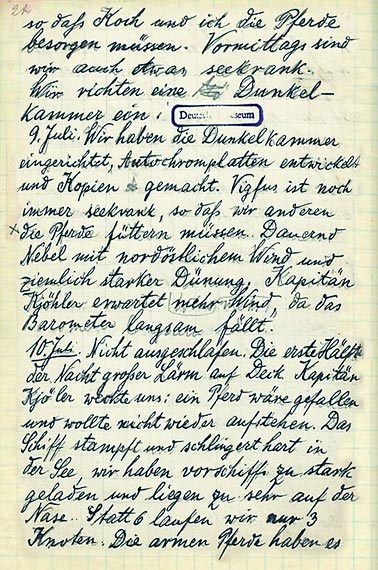 24
so daſs Koch und ich die Pferde
besorgen müssen. Vormittags sind
wir auch etwas seekrank.
Wir richten eine Dunkel-
kammer ein.
Deutsches Museum
9. Juli. Wir haben die Dunkelkammer
eingerichtet, Autochromplatten entwickelt
und Kopien gemacht. Vigfus ist noch
immer seekrank, so daſs wir anderen
× die Pferde füttern müssen. Dauernd
Nebel mit nordöstlichem Wind und
ziemlich starker Dünung, Kapitän
Kjöhler erwartet „mehr Wind“, da das
Barometer langsam fällt.
10. Juli. Nicht ausgeschlafen. Die erste Hälfte
der Nacht großer Lärm auf Deck. Kapitän
Kjöler weckte uns: ein Pferd wäre gefallen
und wollte nicht wieder aufstehen. Das
Schiff stampft und schlingert hart in
der See, wir haben vorschiffs zu stark
geladen und liegen zu sehr auf der
Nase. Statt 6 laufen wir nur 3
Knoten. Die armen Pferde haben es